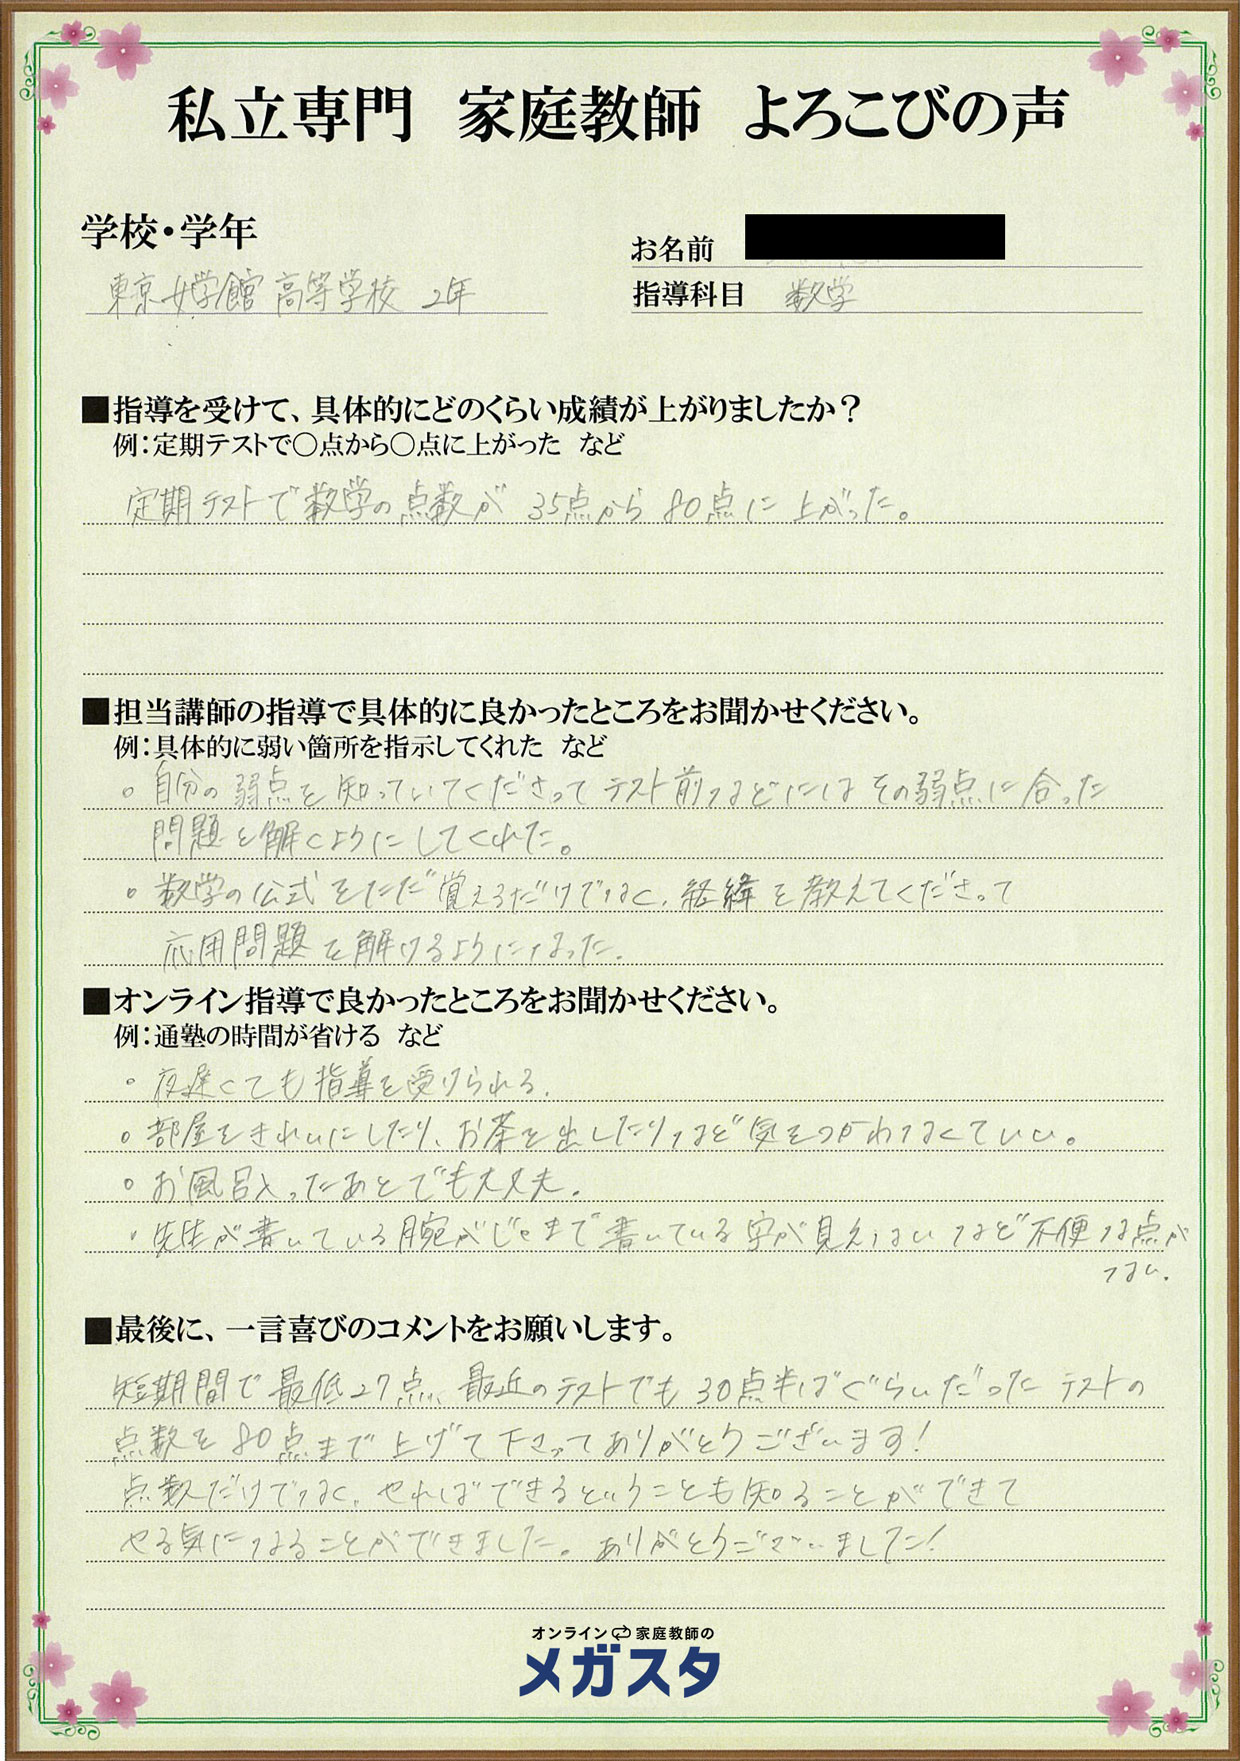 私立専門 家庭教師 よろこびの声
学校・学年
お名前
東京女学館高等学校 2年
指導科目 数学
■指導を受けて、具体的にどのくらい成績が上がりましたか？
例：定期テストで〇点から〇点に上がった など
定期テストで数学の点数が 35点から 80点に上がった。
■担当講師の指導で具体的に良かったところをお聞かせください。
例：具体的に弱い箇所を指示してくれた など
。自分の弱点を知っていてくださってテスト前などにはその弱点に合った
問題を解くようにしてくれた。
。数学の公式をただ覚えるだけでなく、経緯を教えてくださって
応用問題を解けるようになった。
■オンライン指導で良かったところをお聞かせください。
例：通塾の時間が省ける など
。夜遅くても指導を受けられる。
。部屋をきれいにしたり、お茶を出したりなど気をつかわなくていい。
。お風呂入ったあとでも大丈夫。
・先生が書いている腕がじゃまで書いている字が見えないなど不便な点が
ない。
■最後に、一言喜びのコメントをお願いします。
短期間で最低27点、最近のテストでも30点半ばぐらいだったテストの
点数を80点まで上げて下さってありがとうございます！
点数だけでなく、やればできるということも知ることができて
やる気になることができました。ありがとうございました！
オンライン家庭教師の
メガスタ